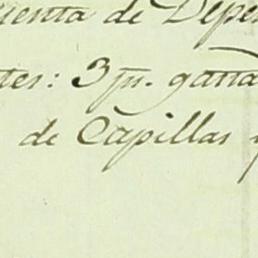 uenta de Depen
tes: 3 jn. gana
de Capillas y